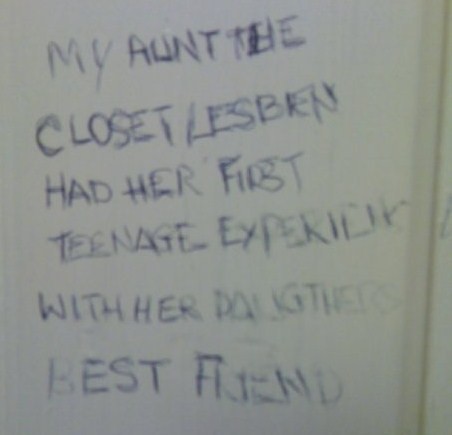 MY AUNT THE
CLOSET LESBIEN
HAD HER FIRST
TEENAGE EXPERIENC
WITH HER DAUGTHERS
BEST FRIEND